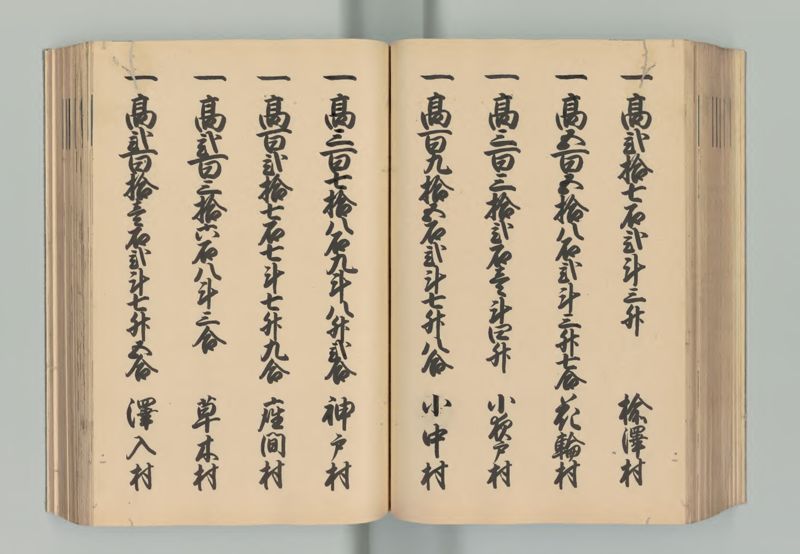 一高弐拾七石弐斗三升 楡澤村
一高五百五拾八石弐斗三升七合 花輪村
一高三百三拾弐石壱斗四升 小夜戸村
一高百九拾五石弐斗七升八合 小中村
一高三百七拾八石九斗八升弐合 神戸村
一高百弐拾七石七斗七升九合 座間村
一高弐百三拾六石八斗三合 草木村
一高弐百拾壱石弐斗七升五合 澤入村